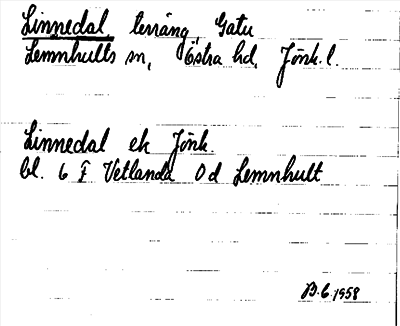 Linnedal terräng, Gatu
Lemnhults sn, Östra hd, Jönk. l.
Linnedal ek Jönk.
bl. 6 F Vetlanda Od Lemnhult
B. 6. 1958